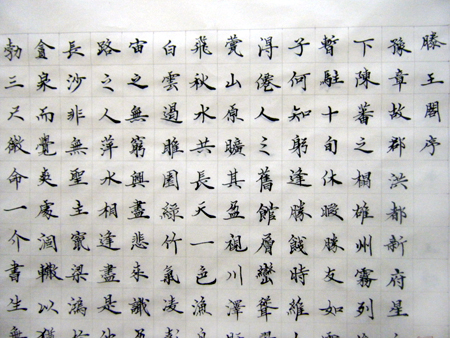 滕王閣序
豫章故郡洪都新府星
下陳蕃之榻雄州霧列
暫駐十旬休暇勝友如雲
子何知躬逢勝餞時維
淂僊人之舊館層巒聳
甍山原曠其盈視川澤
飛秋水共長天一色漁
白雲過睢園綠竹氣凌彭
宙之無窮興盡悲來識
路之人萍水相逢盡是他
長沙非無聖主竄梁鴻
貪泉而覺爽處涸轍以猶
勃三尺微命一介書生無